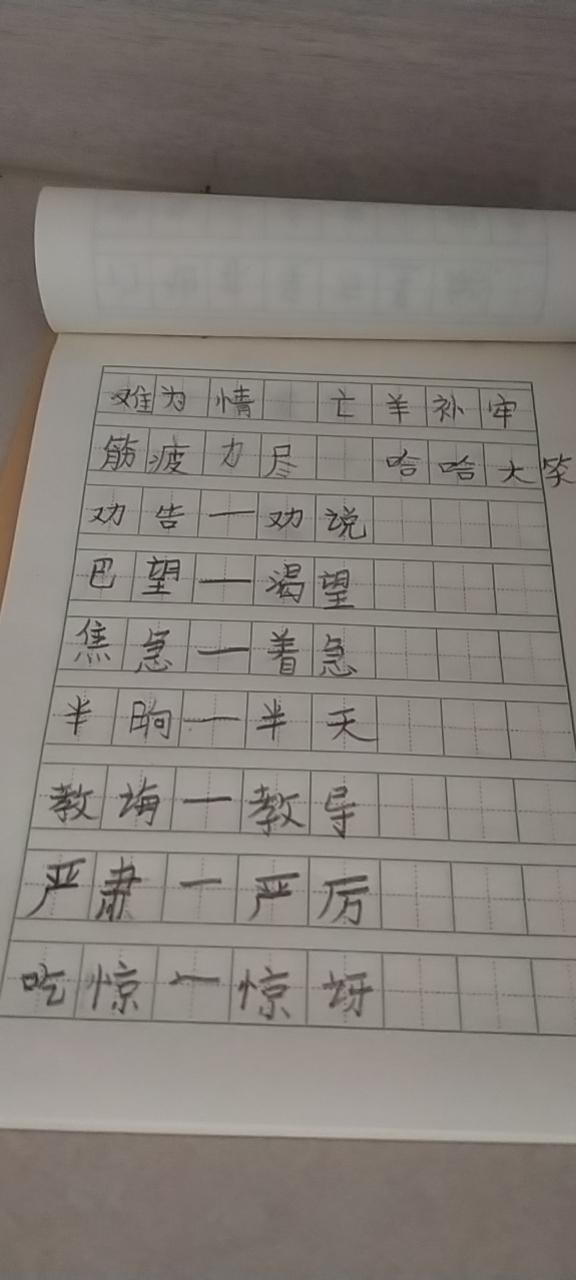 难为情 亡羊补牢
筋疲力尽 哈哈大笑
劝告一劝说
巴望一渴望
焦急一着急
半晌一半天
教诲一教导
严肃一严厉
吃惊一惊讶